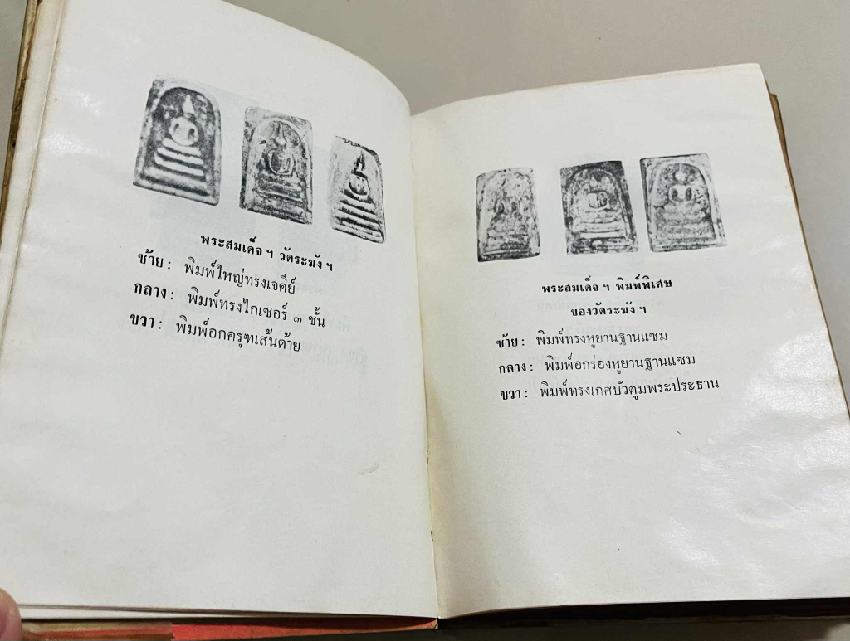 พระสมเด็จ ฯ วัดระฆัง ฯ
ซ้าย : พิมพ์ใหญ่ทรงเจดีย์
กลาง : พิมพ์ทรงไกเซอร์ ๓ ชั้น
ขวา : พิมพ์อกครุฑเส้นด้าย
พระสมเด็จ ฯ พิมพ์พิเศษ
ของวัดระฆัง ฯ
ซ้าย : พิมพ์ทรงหูยานฐานแซม
กลาง : พิมพ์อกร่องหูยานฐานแซม
ขวา : พิมพ์ทรงเกศบัวตูมพระประธาน